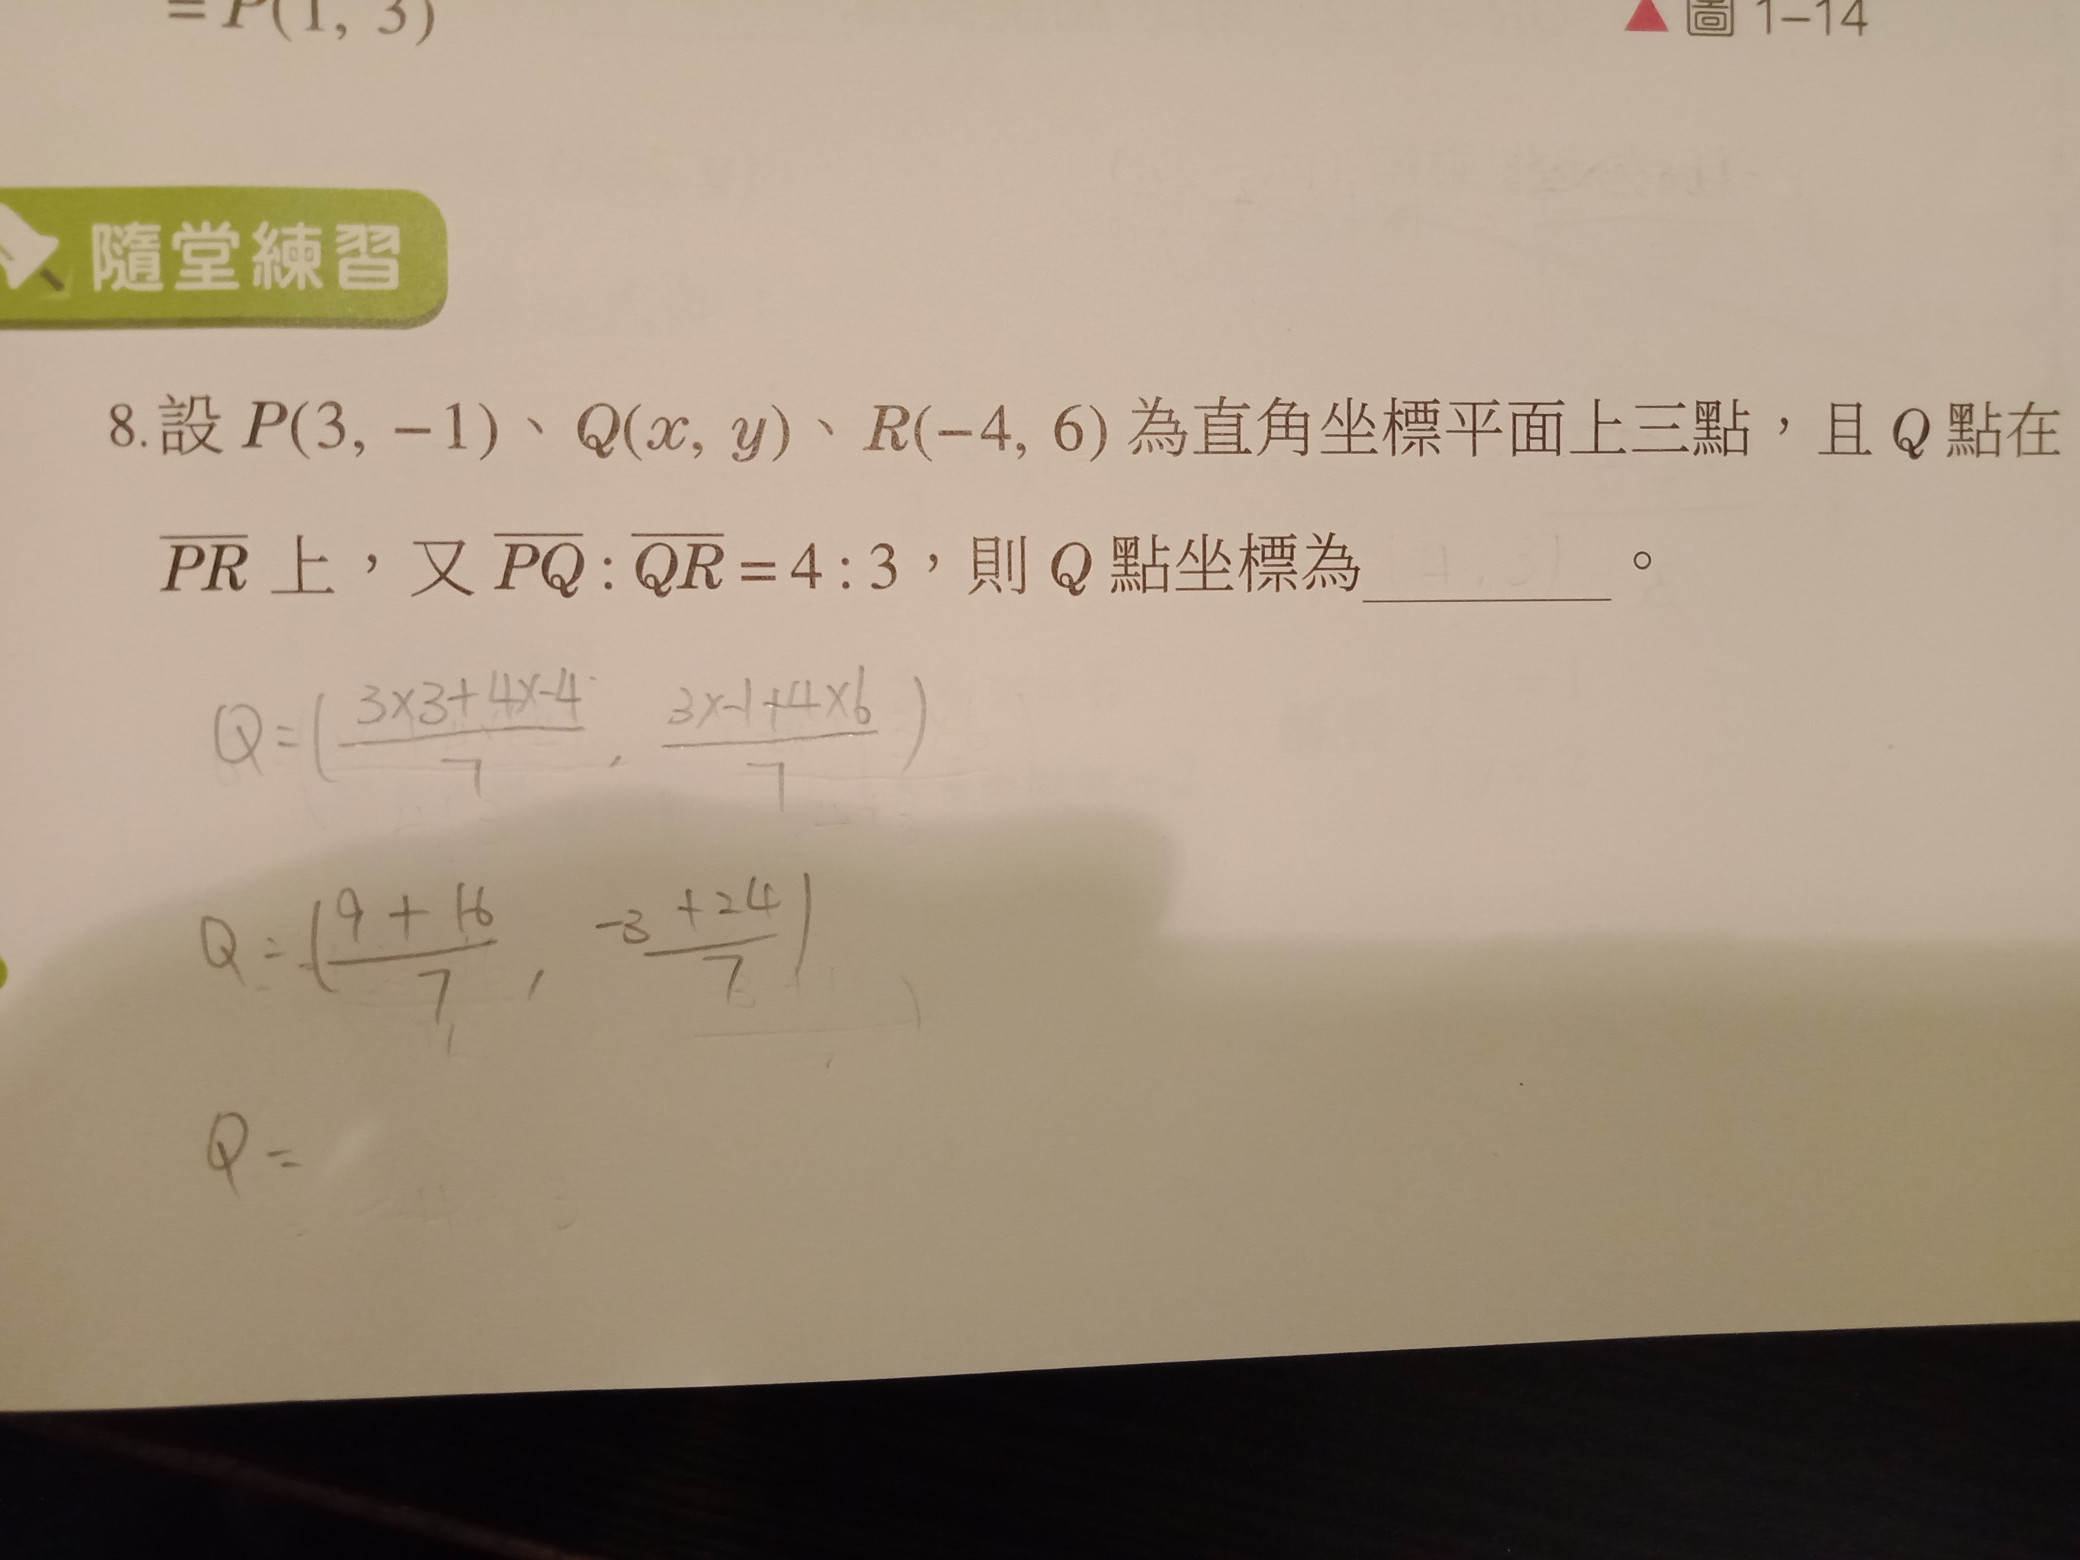 = P(1, 3)
▲ 圖 1–14
隨堂練習
8. 設 P(3, −1)、Q(x, y)、R(−4, 6) 為直角坐標平面上三點，且 Q 點在
PR 上，又 PQ : QR = 4 : 3，則 Q 點坐標為________。
Q = ( 3×3+4×-4 / 7 , 3×-1+4×6 / 7 )
Q = ( 9 + 16 / 7 , -3 + 24 / 7 )
Q =